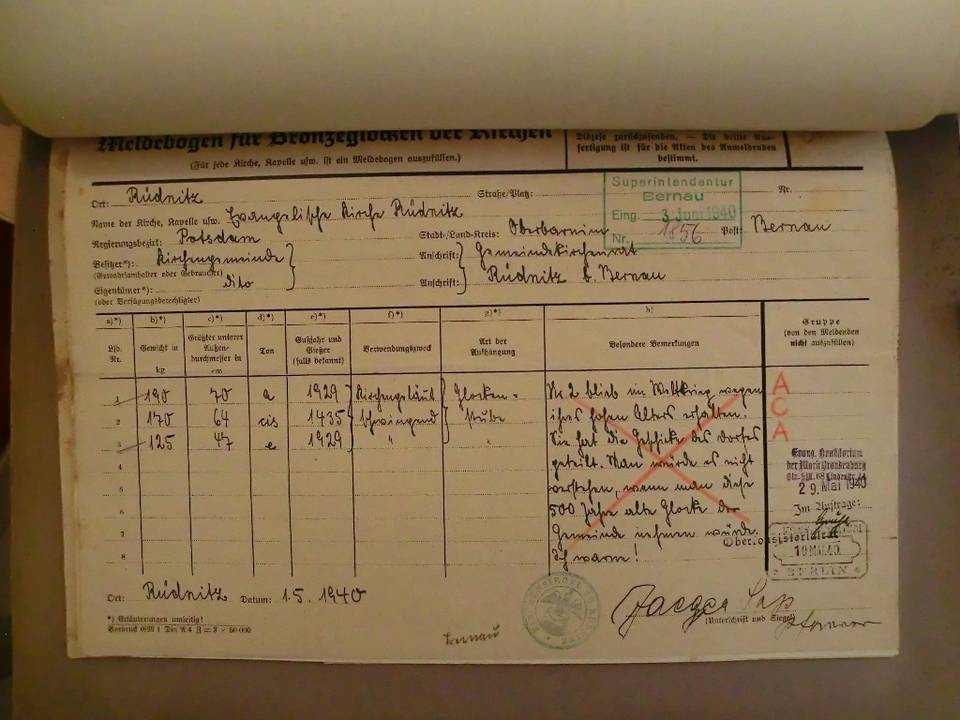 Meldebogen für Bronzeglocken der Kirchen
(Für jede Kirche, Kapelle usw. ist ein Meldebogen auszufüllen.)
Diözese zurückzusenden. — Die dritte Aus-
fertigung ist für die Akten des Anmeldenden
bestimmt.
Ort: Rüdnitz Straße/Platz: Nr.
Name der Kirche, Kapelle usw. Evangelische Kirche Rüdnitz
Regierungsbezirk: Potsdam Stadt-/Land-Kreis: Oberbarnim Post: Bernau
Superintendentur
Bernau
Eing. 3. Juni 1940
Nr. 1856
Besitzer*): Kirchengemeinde Anschrift: Gemeindekirchenrat
(Gewahrsamhalter oder Gebraucher)
Eigentümer*): dito Anschrift: Rüdnitz b. Bernau
(oder Verfügungsberechtigter)
a)*) b)*) c)*) d)*) e)*) f)*) g)*) h)
Lfd. Nr. Gewicht in kg Größter unterer Außen-durchmesser in cm Ton Gußjahr und Gießer (falls bekannt) Verwendungszweck Art der Aufhängung Besondere Bemerkungen Gruppe (von den Meldenden nicht auszufüllen)
1 190 70 a 1929 Kirchengeläut Glocken- Nr. 2 blieb im Weltkrieg wegen A
2 170 64 cis 1435 schwingend stube ihres hohen Alters erhalten. C
3 125 47 e 1929 " " Sie hat die Geschicke des Dorfes A
4 geteilt. Man würde es nicht
5 verstehen, wenn man diese
6 500 Jahre alte Glocke der
7 Gemeinde nehmen würde.
8 Ich warne!
Evang. Konsistorium
der Mark Brandenburg
29. Mai 1940
Im Auftrage:
Oberkonsistorialrat
BERLIN
Ort: Rüdnitz Datum: 1.5.1940
Jaeger
(Unterschrift und Siegel)
Pfarrer
*) Erläuterungen umseitig!
Bernau